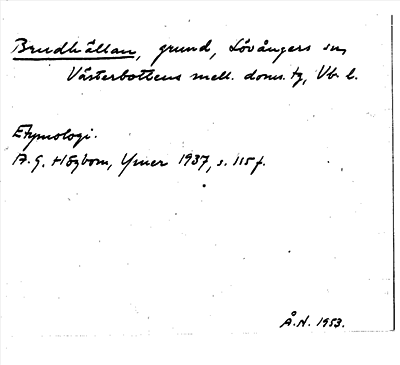 Brudhällan, grund, Lövångers sn,
Västerbottens mell. doms. tg, Vb. l.
Etymologi.
A. G. Högbom, Ymer 1937, s. 115 f.
Å.N. 1953.